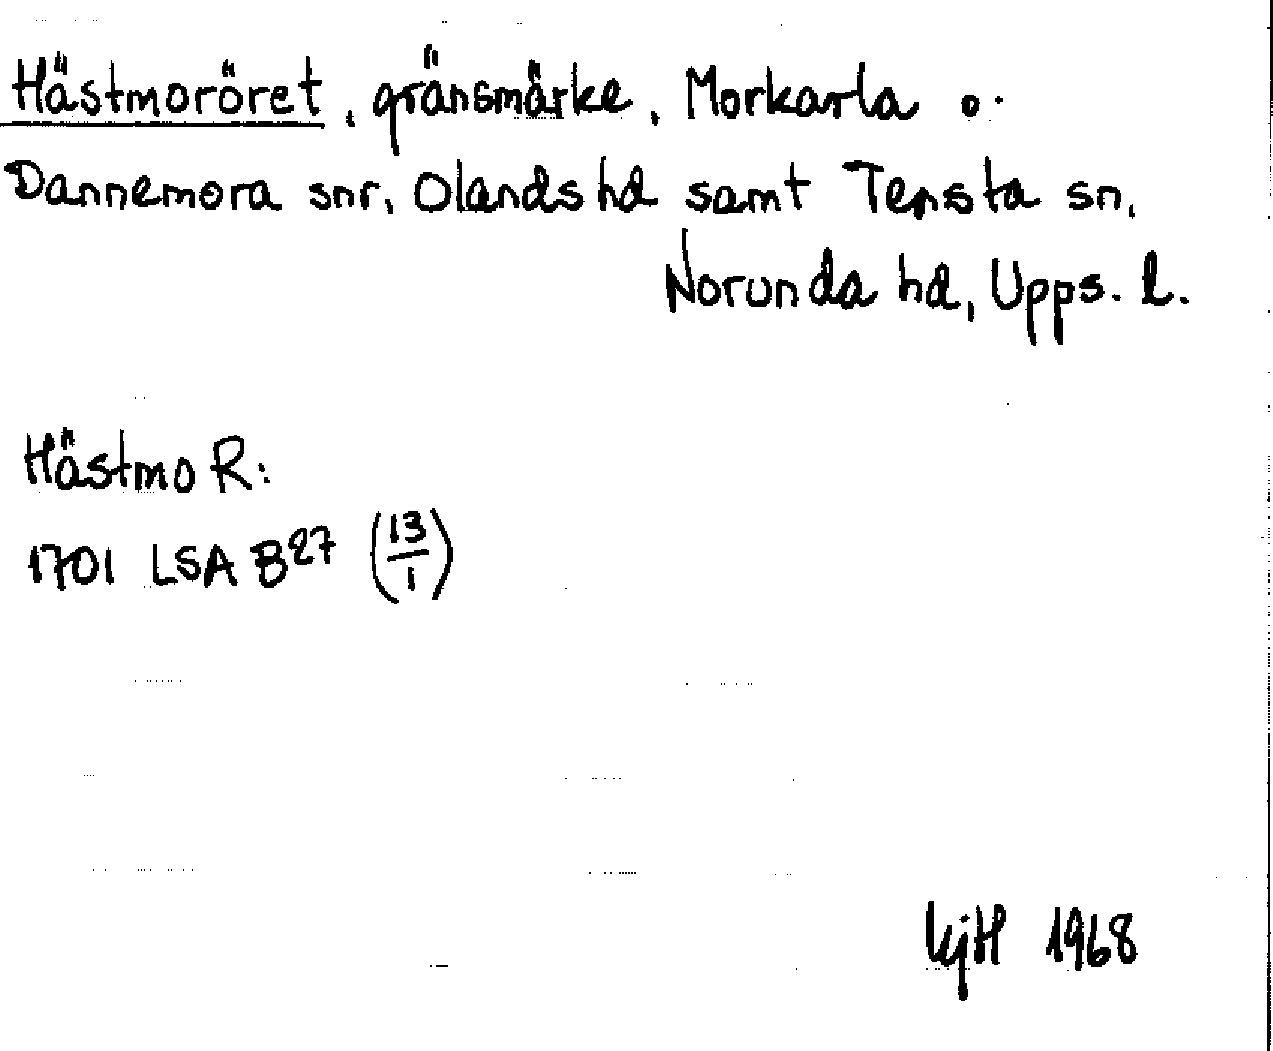 Hästmoröret, gränsmärke, Morkarla o.
Dannemora snr, Olands hd samt Tensta sn,
Norunda hd, Upps. l.
Hästmo R:
1701 LSA B27 (13/1)
KjH 1968